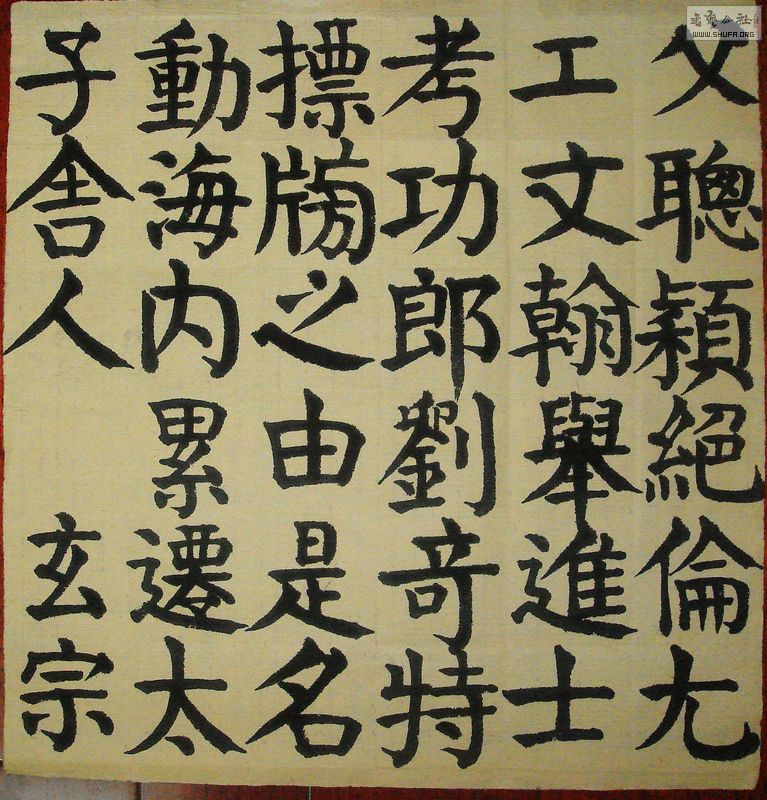 父聰穎絶倫尤
工文翰舉進士
考功郎劉竒特
摽牓之由是名
動海内累遷太
子舍人 玄宗
書藝公社
WWW.SHUFA.ORG